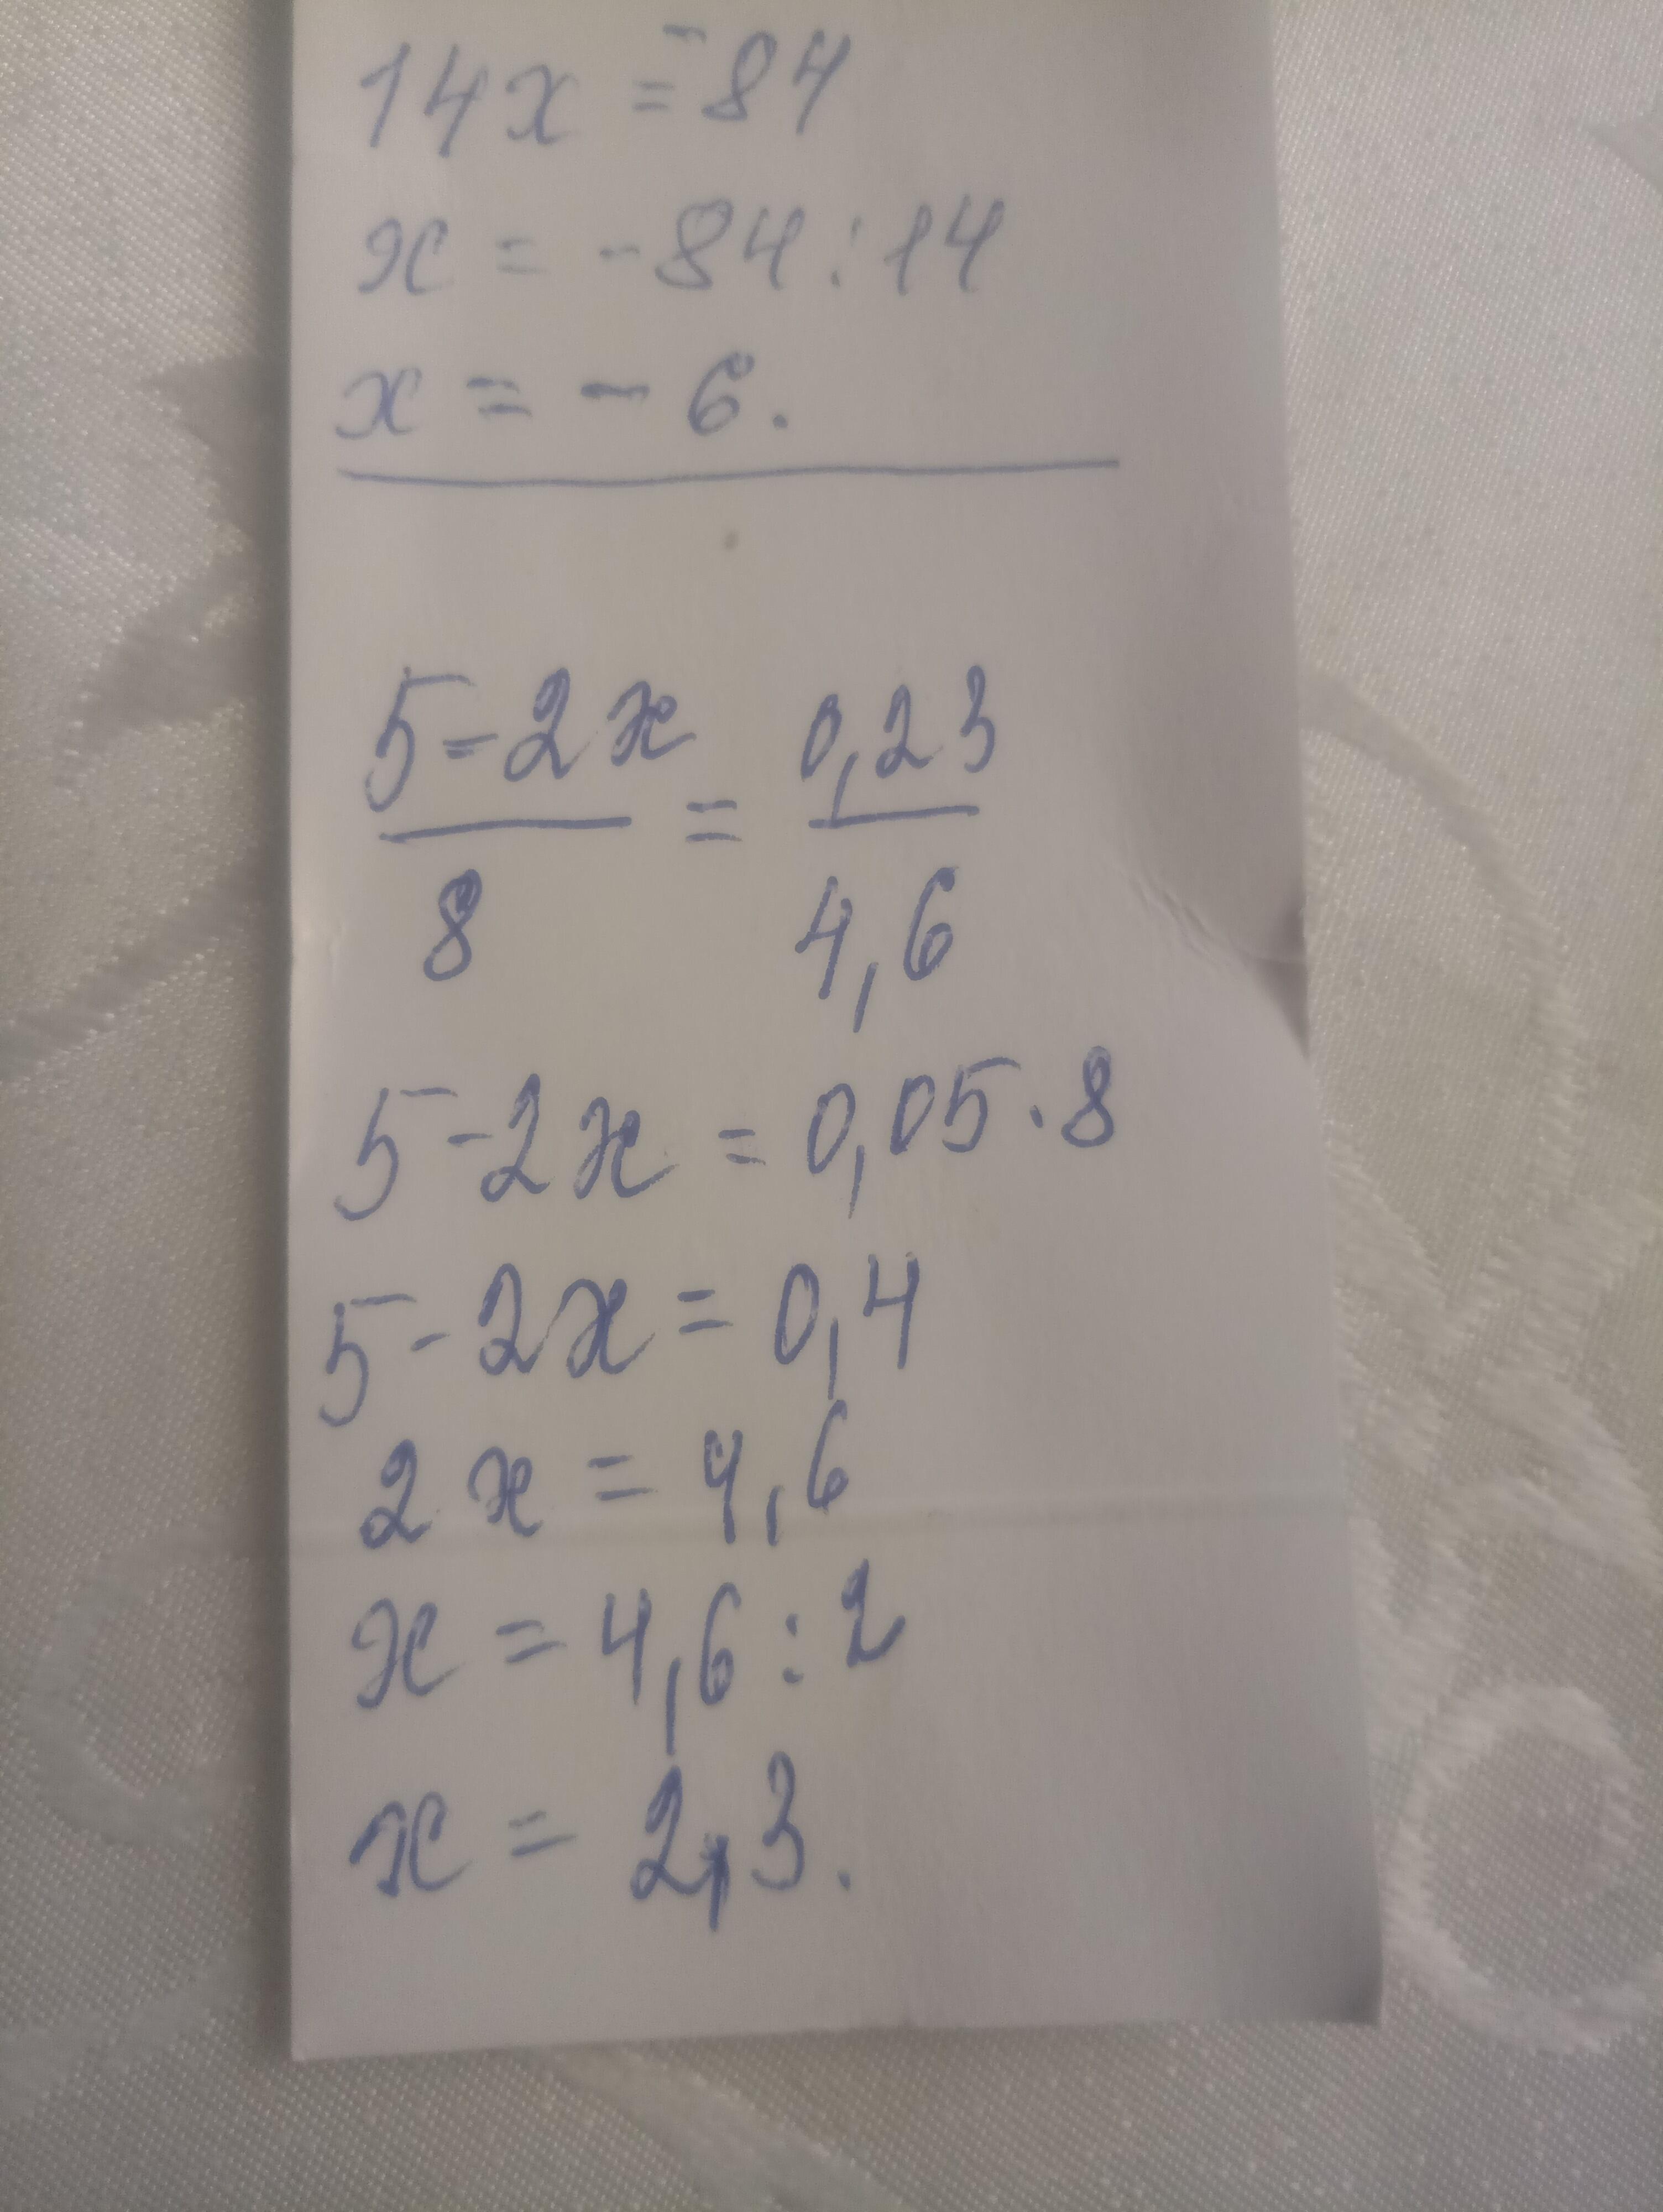 14x = -84
x = -84 : 14
x = - 6.
5-2x = 0,23
8 4,6
5-2x = 0,05 · 8
5-2x = 0,4
2x = 4,6
x = 4,6 : 2
x = 2,3.